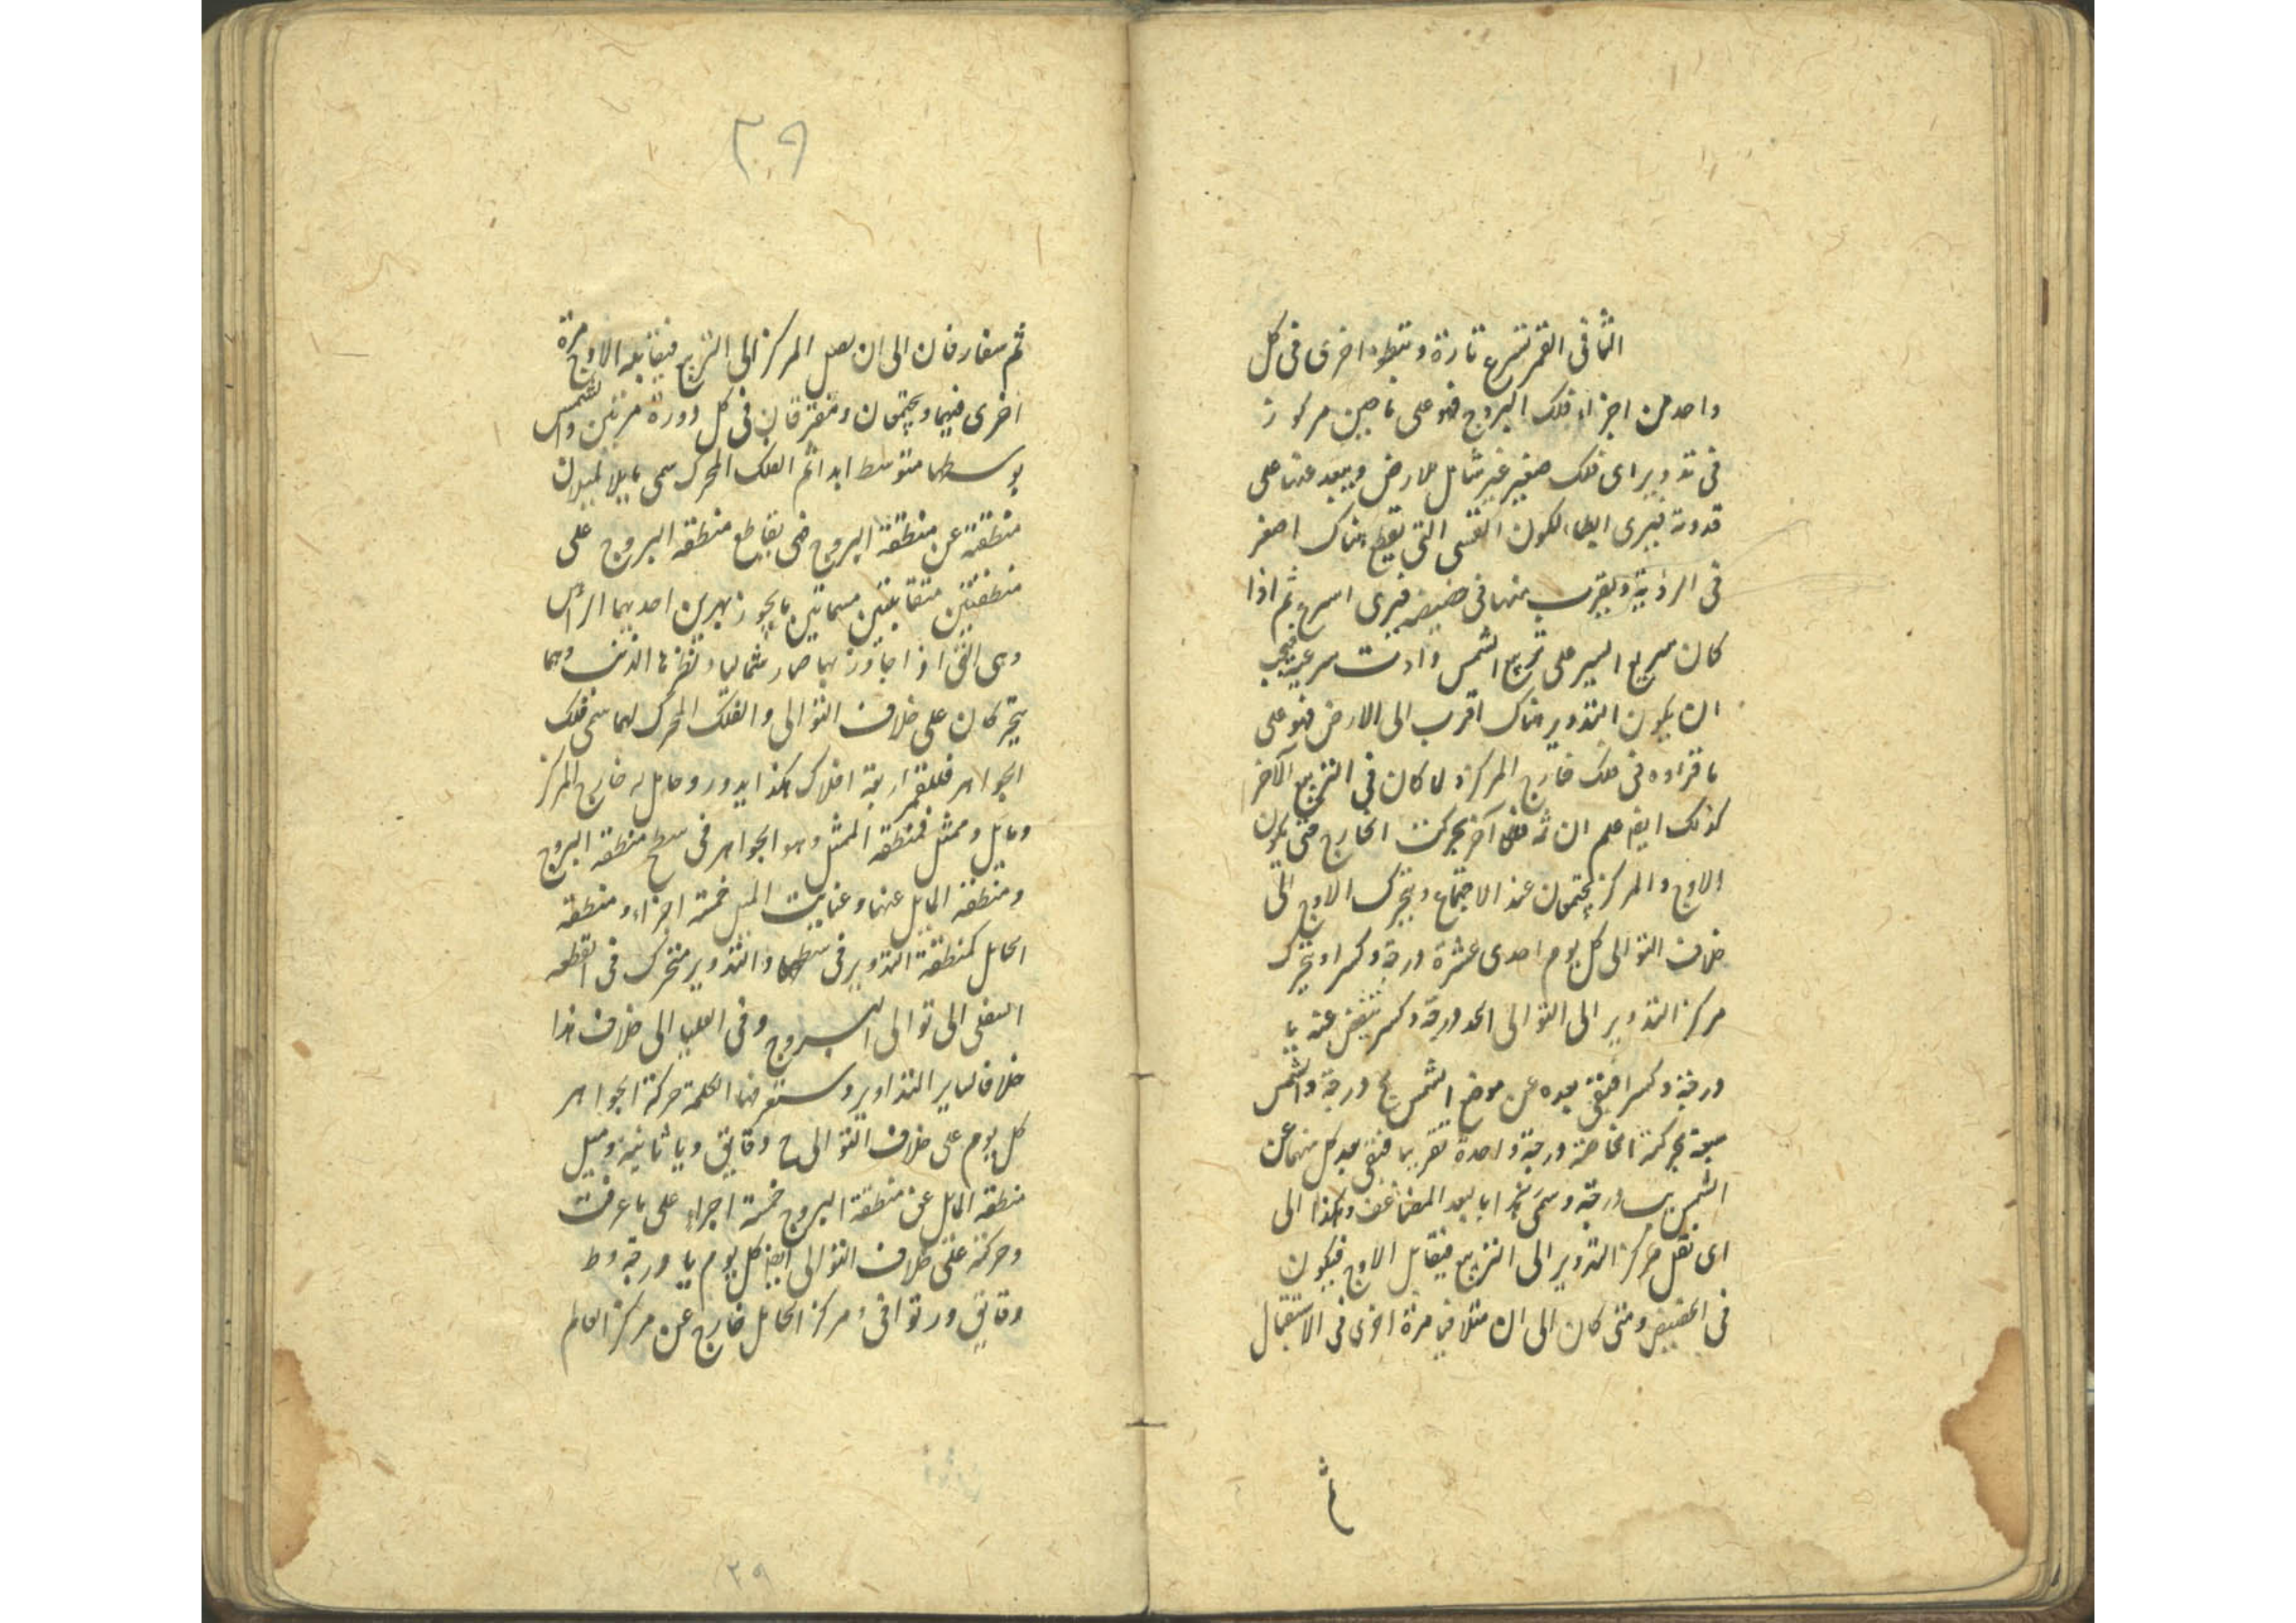 الثانى القمر تسرع تارة و تبطوء اخرى فى كل
واحد من اجزاء فلك البروج فهو على ما تبين مركوز
فى تدوير اى فلك صغير غير شامل للارض ويبعد عنها على
ذروته فيرى ابطاء لكون القسى التى تقطع هناك اصغر
فى الرؤية ويقرب منها فى حضيضه فيرى اسرع ثم اذا
كان سريع السير على تربيع الشمس زادت سرعته فيجب
ان يكون التدوير هناك اقرب الى الارض فهو على
ما قرروه فى فلك خارج المركز ولما كان فى التربيع الآخر
كذلك ايضا علم ان ثمه فلكا آخر يحرك الخارج حتى يكون
الاوج والمركز يجتمعان عند الاجتماع ويتحرك الاوج الى
خلاف التوالى كل يوم احدى عشرة درجة وكسرا ويتحرك
مركز التدوير الى التوالى كد درجة وكسر ينتقص عنه يا
درجة وكسرا فيبقى بعده عن موضع الشمس يج درجة والشمس
تتبعه بحركته الخاصة درجة واحدة تقريبا فيبقى بعد كل منهما عن
الشمس يب درجة وسمى هذا بالبعد المضاعف وهكذا الى
اى نقل مركز التدوير الى التربيع فيقابل الاوج فيكون
فى الحضيض ومتى كان الى ان يتلاقيا مرة اخرى فى الاستقبال
ثم
٣٩
ثم يتفارقان الى ان يصل المركز الى التربيع فيقابله الاوج مرة
اخرى فيهما ويجتمعان ويفترقان فى كل دورة مرتين والشمس
بوسطها متوسط ابدا ثم الفلك المحرك سمى مايلا لميلان
منطقته عن منطقة البروج فهى تقاطع منطقة البروج على
نقطتين متقابلتين مسماتين بالجوزهرين احديهما الراس
وهى التى اذا جاوزها صار شماليا ونظيرها الذنب وهما
يتحركان على خلاف التوالى والفلك المحرك لهما سمى فلك
الجواهر فللقمر اربعة افلاك هكذا تدوير وحامل له خارج المركز
ومايل وممثل فمنطقة الممثل وهو الجواهر فى سطح منطقة البروج
ومنطقة المايل عنها وغايت الميل خمسة اجزاء ومنطقة
الحامل كمنطقة التدوير فى سطحها والتدوير متحرك فى القطعه
السفلى الى توالى البروج وفى العليا الى خلاف هذا
خلافا لساير التداوير وستعرف الكلمة حركة الجواهر
كل يوم على خلاف التوالى ج دقايق ويا ثانية وميل
منطقة المايل عن منطقة البروج خمسة اجزاء على ما عرفت
وحركته على خلاف التوالى ايضا كل يوم يا درجة وط
دقايق وز ثوانى ومركز الحامل خارج عن مركز العالم
٣٩